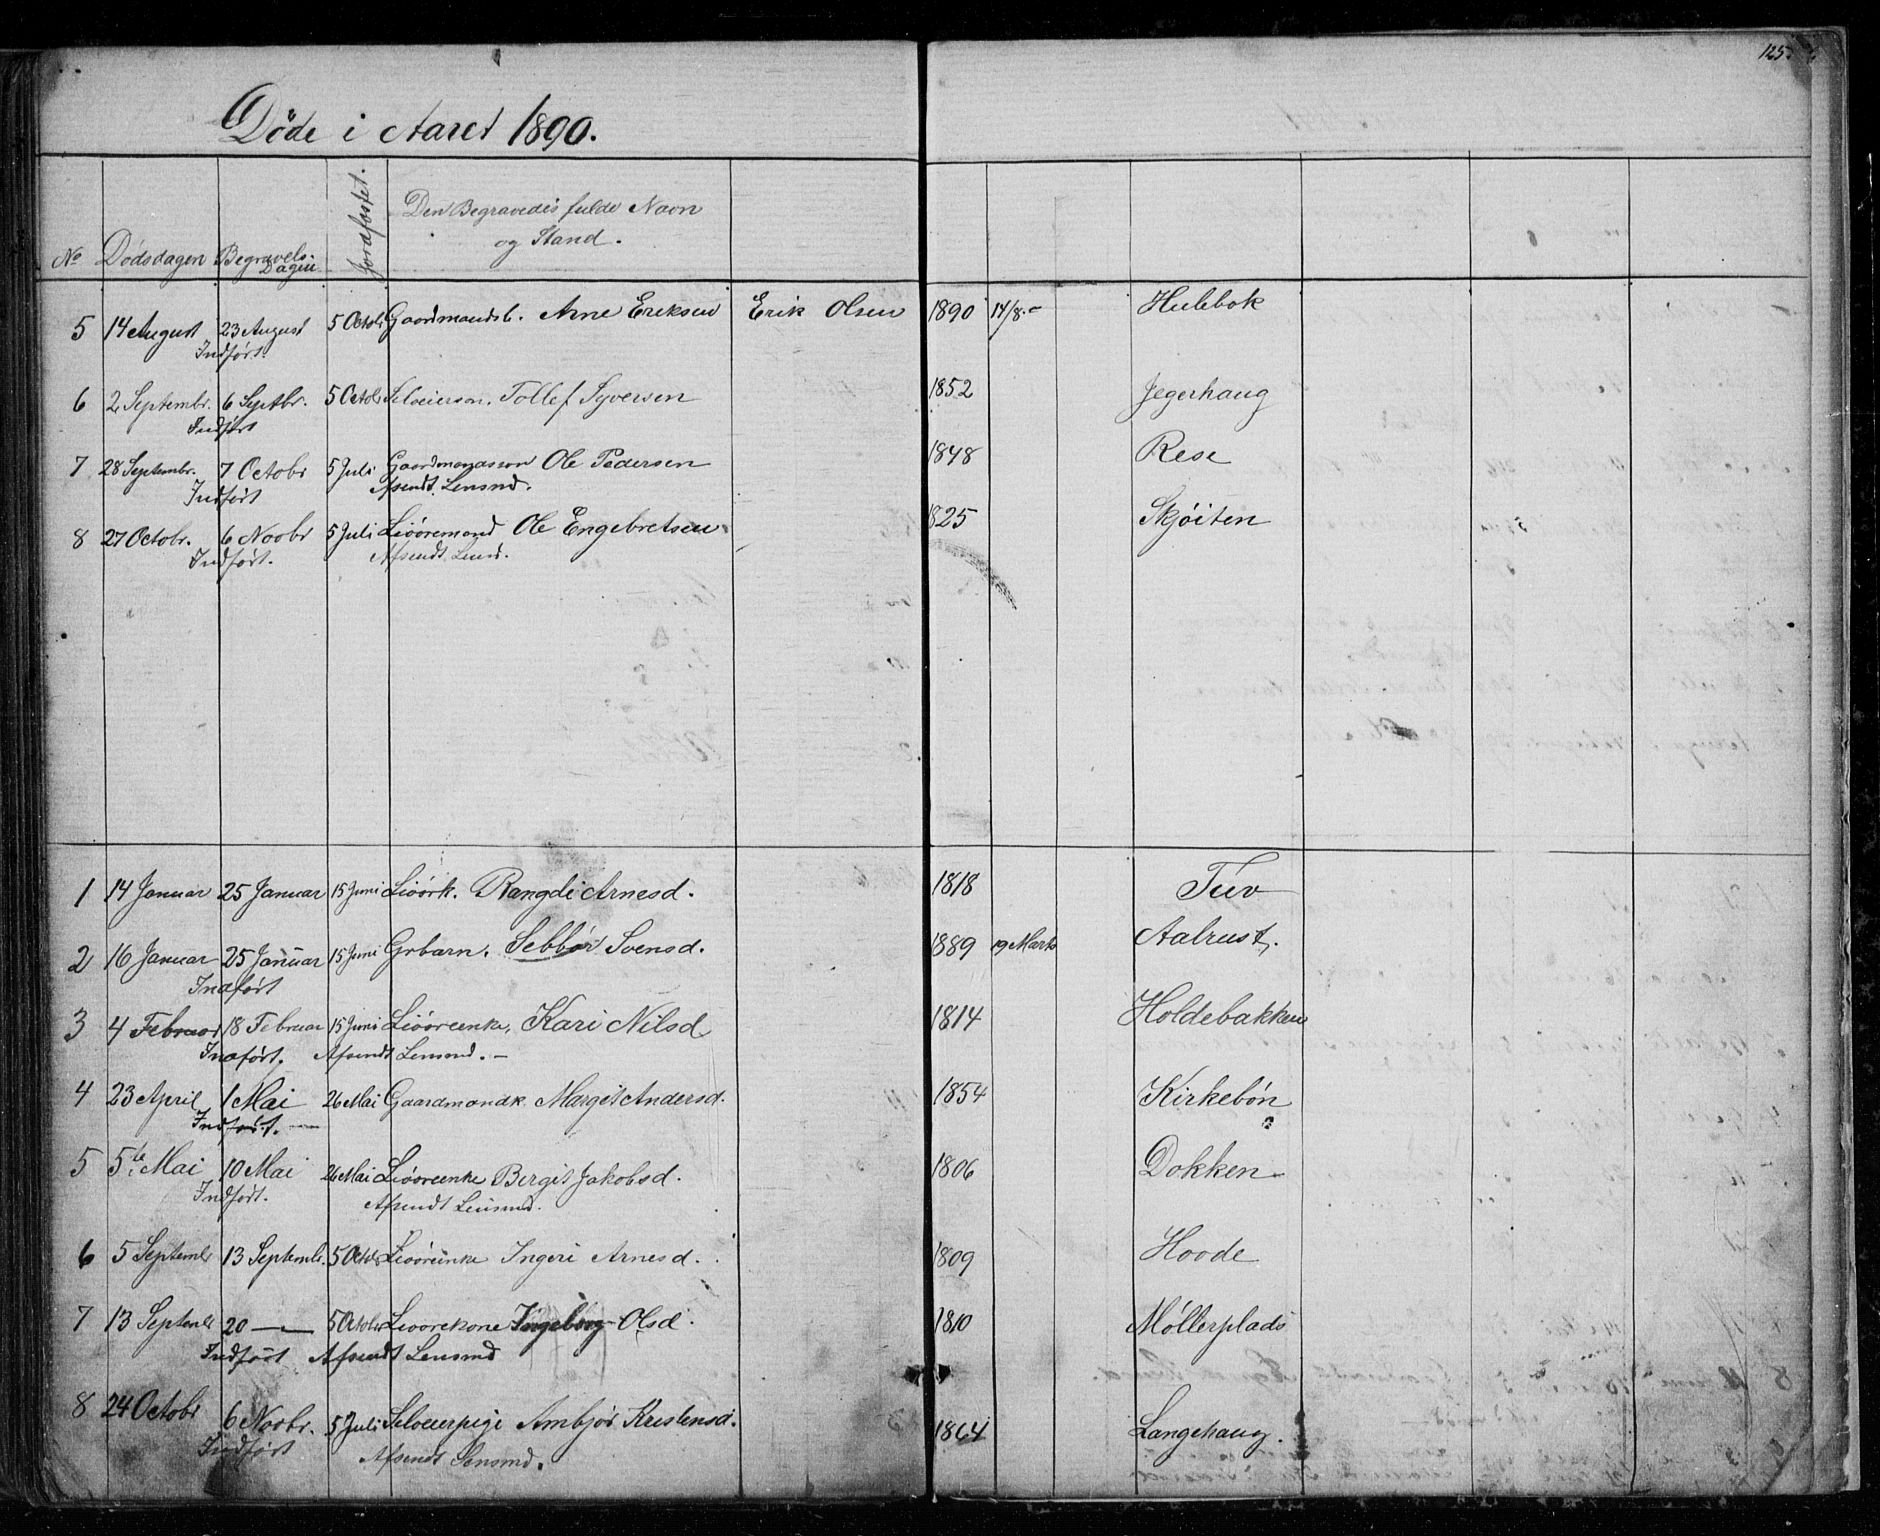 125.
Døde i Aaret 1890.
No Dødsdagen Begravels-Dagen Jordfæstet. Den Begravedes fulde Navn og Stand.
5 14 August 23 August 5 Octob Gaardmandsb. Arne Eriksen Erik Olsen 1890 14/8 Hulebok
Indført.
6 2 Septembr. 6 Septbr. 5 Octob Selveierson. Tollef Syversen 1852 Jegerhaug
Indført
7 28 Septembr. 7 Octobr 5 Juli Gaardmandsson Ole Pedersen 1848 Rese
Indført Afsendt Lensmd.
8 27 Octobr. 6 Novbr 5 Juli Livøremand Ole Engebretsen 1825 Skjøiten
Indført. Afsendt Lensd.
1 14 Januar 25 Januar 15 Juni Livørk. Rangdi Arnesd. 1818 Tuv
2 16 Januar 25 Januar 15 Juni Grbarn. Sebbør Svensd. 1889 19 Marts Aalrust.
Indført
3 4 Februar 18 Februar 15 Juni Livøreenke, Kari Nilsd 1814 Holdebakken
Indført. Afsendt Lensmd. —
4 23 April 1 Mai 26 Mai Gaardmandk. Margit Andersd. 1854 Kirkebøn
Indført. —
5 5te Mai 10 Mai 26 Mai Livøreenke Bergit Jakobsd. 1806 Dokken
Indført. Afsendt Lensmd.
6 5 Septembr 13 Septembr. 5 Octob Livøreenke Ingeri Arnesd. 1809 Hovde
7 13 Septembr 20 — 5 Octob Livørekone Ingeborg Olsd. 1810 Møllerplads
Indført Afsendt Lensmd
8 24 Octobr 6 Novbr. 5 Juli Selveierpige Ambjør Kristensd. 1864 Langehaug.
Indført Afsendt Lensmd.